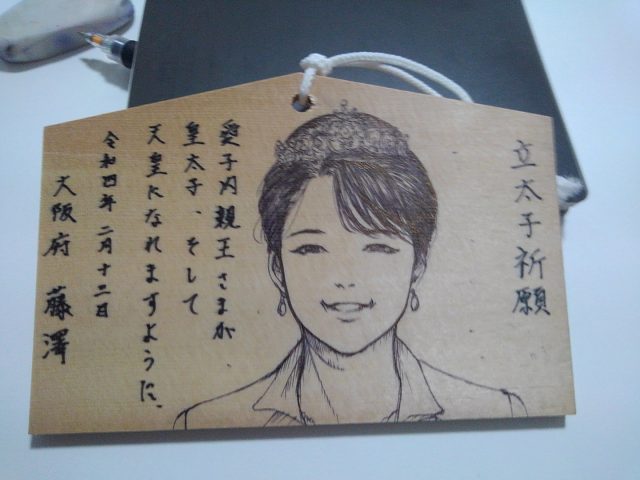 立太子祈願
愛子内親王さまが
皇太子、そして
天皇になれますように、
令和四年二月十二日
大阪府 藤澤